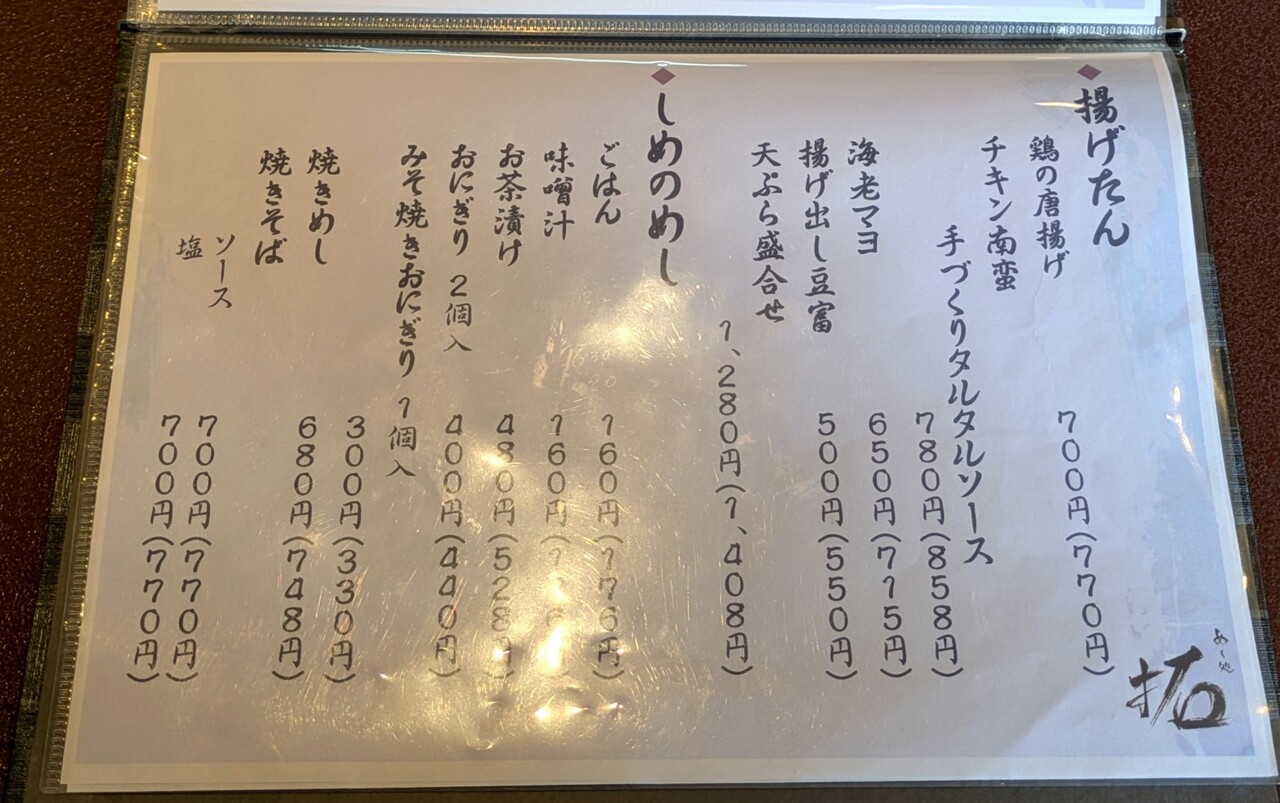 ◆揚げたん
鶏の唐揚げ
700円(770円)
チキン南蛮
手づくりタルタルソース
780円(858円)
海老マヨ
650円(715円)
揚げ出し豆富
500円(550円)
天ぷら盛合せ
1、280円(1、408円)
◆しめのめし
ごはん
160円(176円)
味噌汁
160円(176円)
お茶漬け
480円(528円)
おにぎり 2個入
400円(440円)
みそ焼きおにぎり 1個入
300円(330円)
焼きめし
680円(748円)
焼きそば
ソース
700円(770円)
塩
700円(770円)
めし処
拓